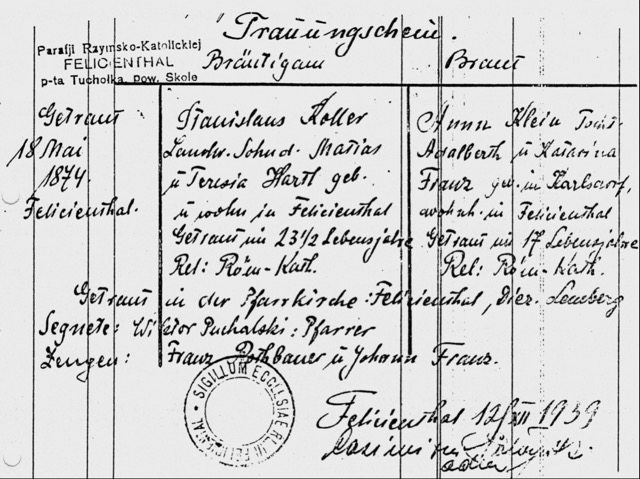 Trauungschein.
Parafji Rzymsko-Katolickiej
FELICIENTHAL
p-ta Tuchołka, pow. Skole
Bräutigam
Braut
Getraut
18 Mai
1874.
Felicienthal.
Stanislaus Koller
Landw. Sohn d. Matias
u Teresia Hartl geb.
u wohn in Felicienthal
Getraut im 23 1/2 Lebensjahre
Rel: Röm-Kath.
Anna Klein Tocht.
Adalberth u Katarina
Franz gew. in Karlsdorf,
wohnh. in Felicienthal
Getraut im 17 Lebensjahre
Rel: Röm-Kath.
Getraut in der Pfarrkirche: Felicienthal, Diez. Lemberg
Segnete: Wiktor Puchalski: Pfarrer
Zeugen: Franz Rothbauer u Johann Franz.
SIGILLUM ECCLSIAE R.L. IN FELICIENTAL
Felicienthal 12/XII 1939